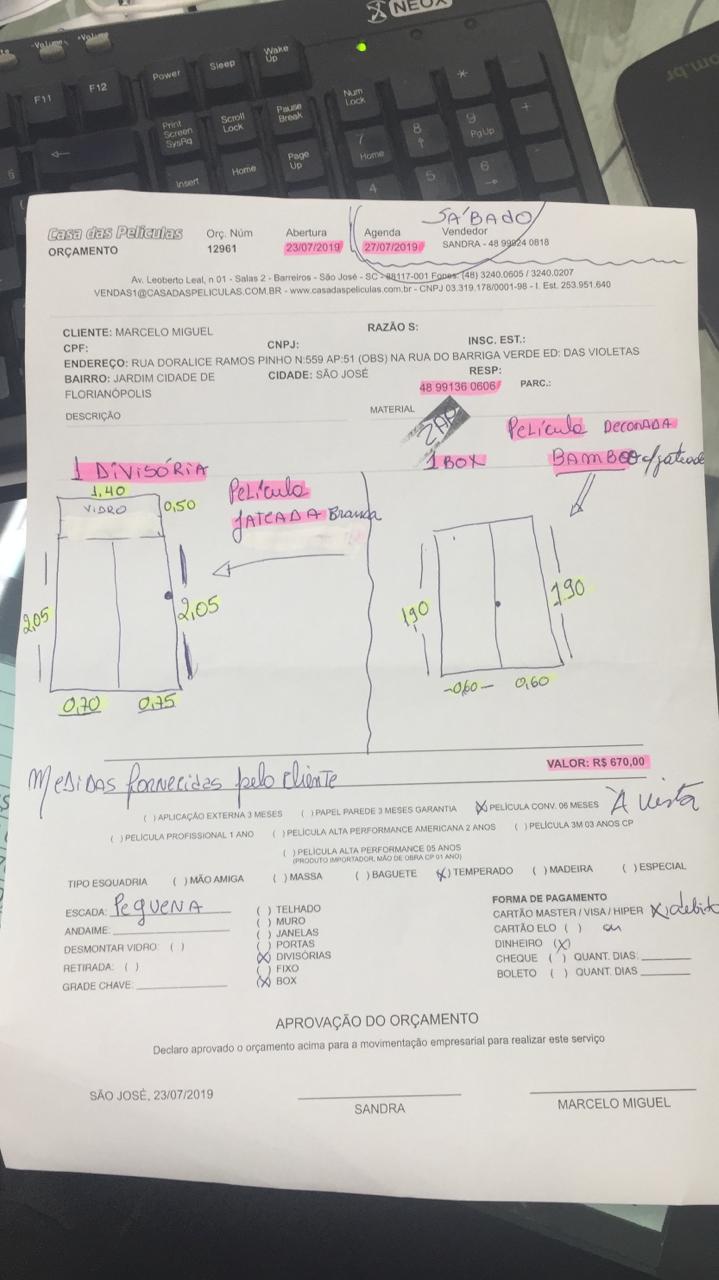 NEOX
-Volume
+Volume
Wake Up
Sleep
Power
F12
F11
Num Lock
Pause Break
Scroll Lock
Print Screen SysRq
Page Up
Home
Insert
7 Home
8
9 PgUp
4
5
6
*
+
om.br
SÁBADO
Casa das Películas
ORÇAMENTO
Orç. Núm
12961
Abertura
23/07/2019
Agenda
27/07/2019
Vendedor
SANDRA - 48 99924 0818
Av. Leoberto Leal, n 01 - Salas 2 - Barreiros - São José - SC - 88117-001 Fones: (48) 3240.0605 / 3240.0207
VENDAS1@CASADASPELICULAS.COM.BR - www.casadaspeliculas.com.br - CNPJ 03.319.178/0001-98 - I. Est. 253.951.640
CLIENTE: MARCELO MIGUEL
RAZÃO S:
CPF:
CNPJ:
INSC. EST.:
ENDEREÇO: RUA DORALICE RAMOS PINHO N:559 AP:51 (OBS) NA RUA DO BARRIGA VERDE ED: DAS VIOLETAS
BAIRRO: JARDIM CIDADE DE FLORIANÓPOLIS
CIDADE: SÃO JOSÉ
RESP:
48 99136 0606
PARC.:
DESCRIÇÃO
MATERIAL
ZAP
1 DIVISÓRIA
1,40
VIDRO
0,50
Película
JATEADA Branca
2,05
2,05
0,70
0,75
1 BOX
Película DECORADA
BAMBOO c/jateado
1,90
1,90
-0,60-
0,60
VALOR: R$ 670,00
Medidas fornecidas pelo cliente
( ) APLICAÇÃO EXTERNA 3 MESES ( ) PAPEL PAREDE 3 MESES GARANTIA (X) PELÍCULA CONV. 06 MESES À vista
( ) PELÍCULA PROFISSIONAL 1 ANO ( ) PELÍCULA ALTA PERFORMANCE AMERICANA 2 ANOS ( ) PELÍCULA 3M 03 ANOS CP
( ) PELÍCULA ALTA PERFORMANCE 05 ANOS
(PRODUTO IMPORTADOR, MÃO DE OBRA CP 01 ANO)
TIPO ESQUADRIA ( ) MÃO AMIGA ( ) MASSA ( ) BAGUETE (X) TEMPERADO ( ) MADEIRA ( ) ESPECIAL
ESCADA: PEQUENA
ANDAIME:
DESMONTAR VIDRO: ( )
RETIRADA: ( )
GRADE CHAVE:
( ) TELHADO
( ) MURO
( ) JANELAS
( ) PORTAS
(X) DIVISÓRIAS
( ) FIXO
(X) BOX
FORMA DE PAGAMENTO
CARTÃO MASTER / VISA / HIPER (X) debito
CARTÃO ELO ( ) ou
DINHEIRO (X)
CHEQUE ( ) QUANT. DIAS:
BOLETO ( ) QUANT. DIAS
APROVAÇÃO DO ORÇAMENTO
Declaro aprovado o orçamento acima para a movimentação empresarial para realizar este serviço
SÃO JOSÉ, 23/07/2019
SANDRA
MARCELO MIGUEL